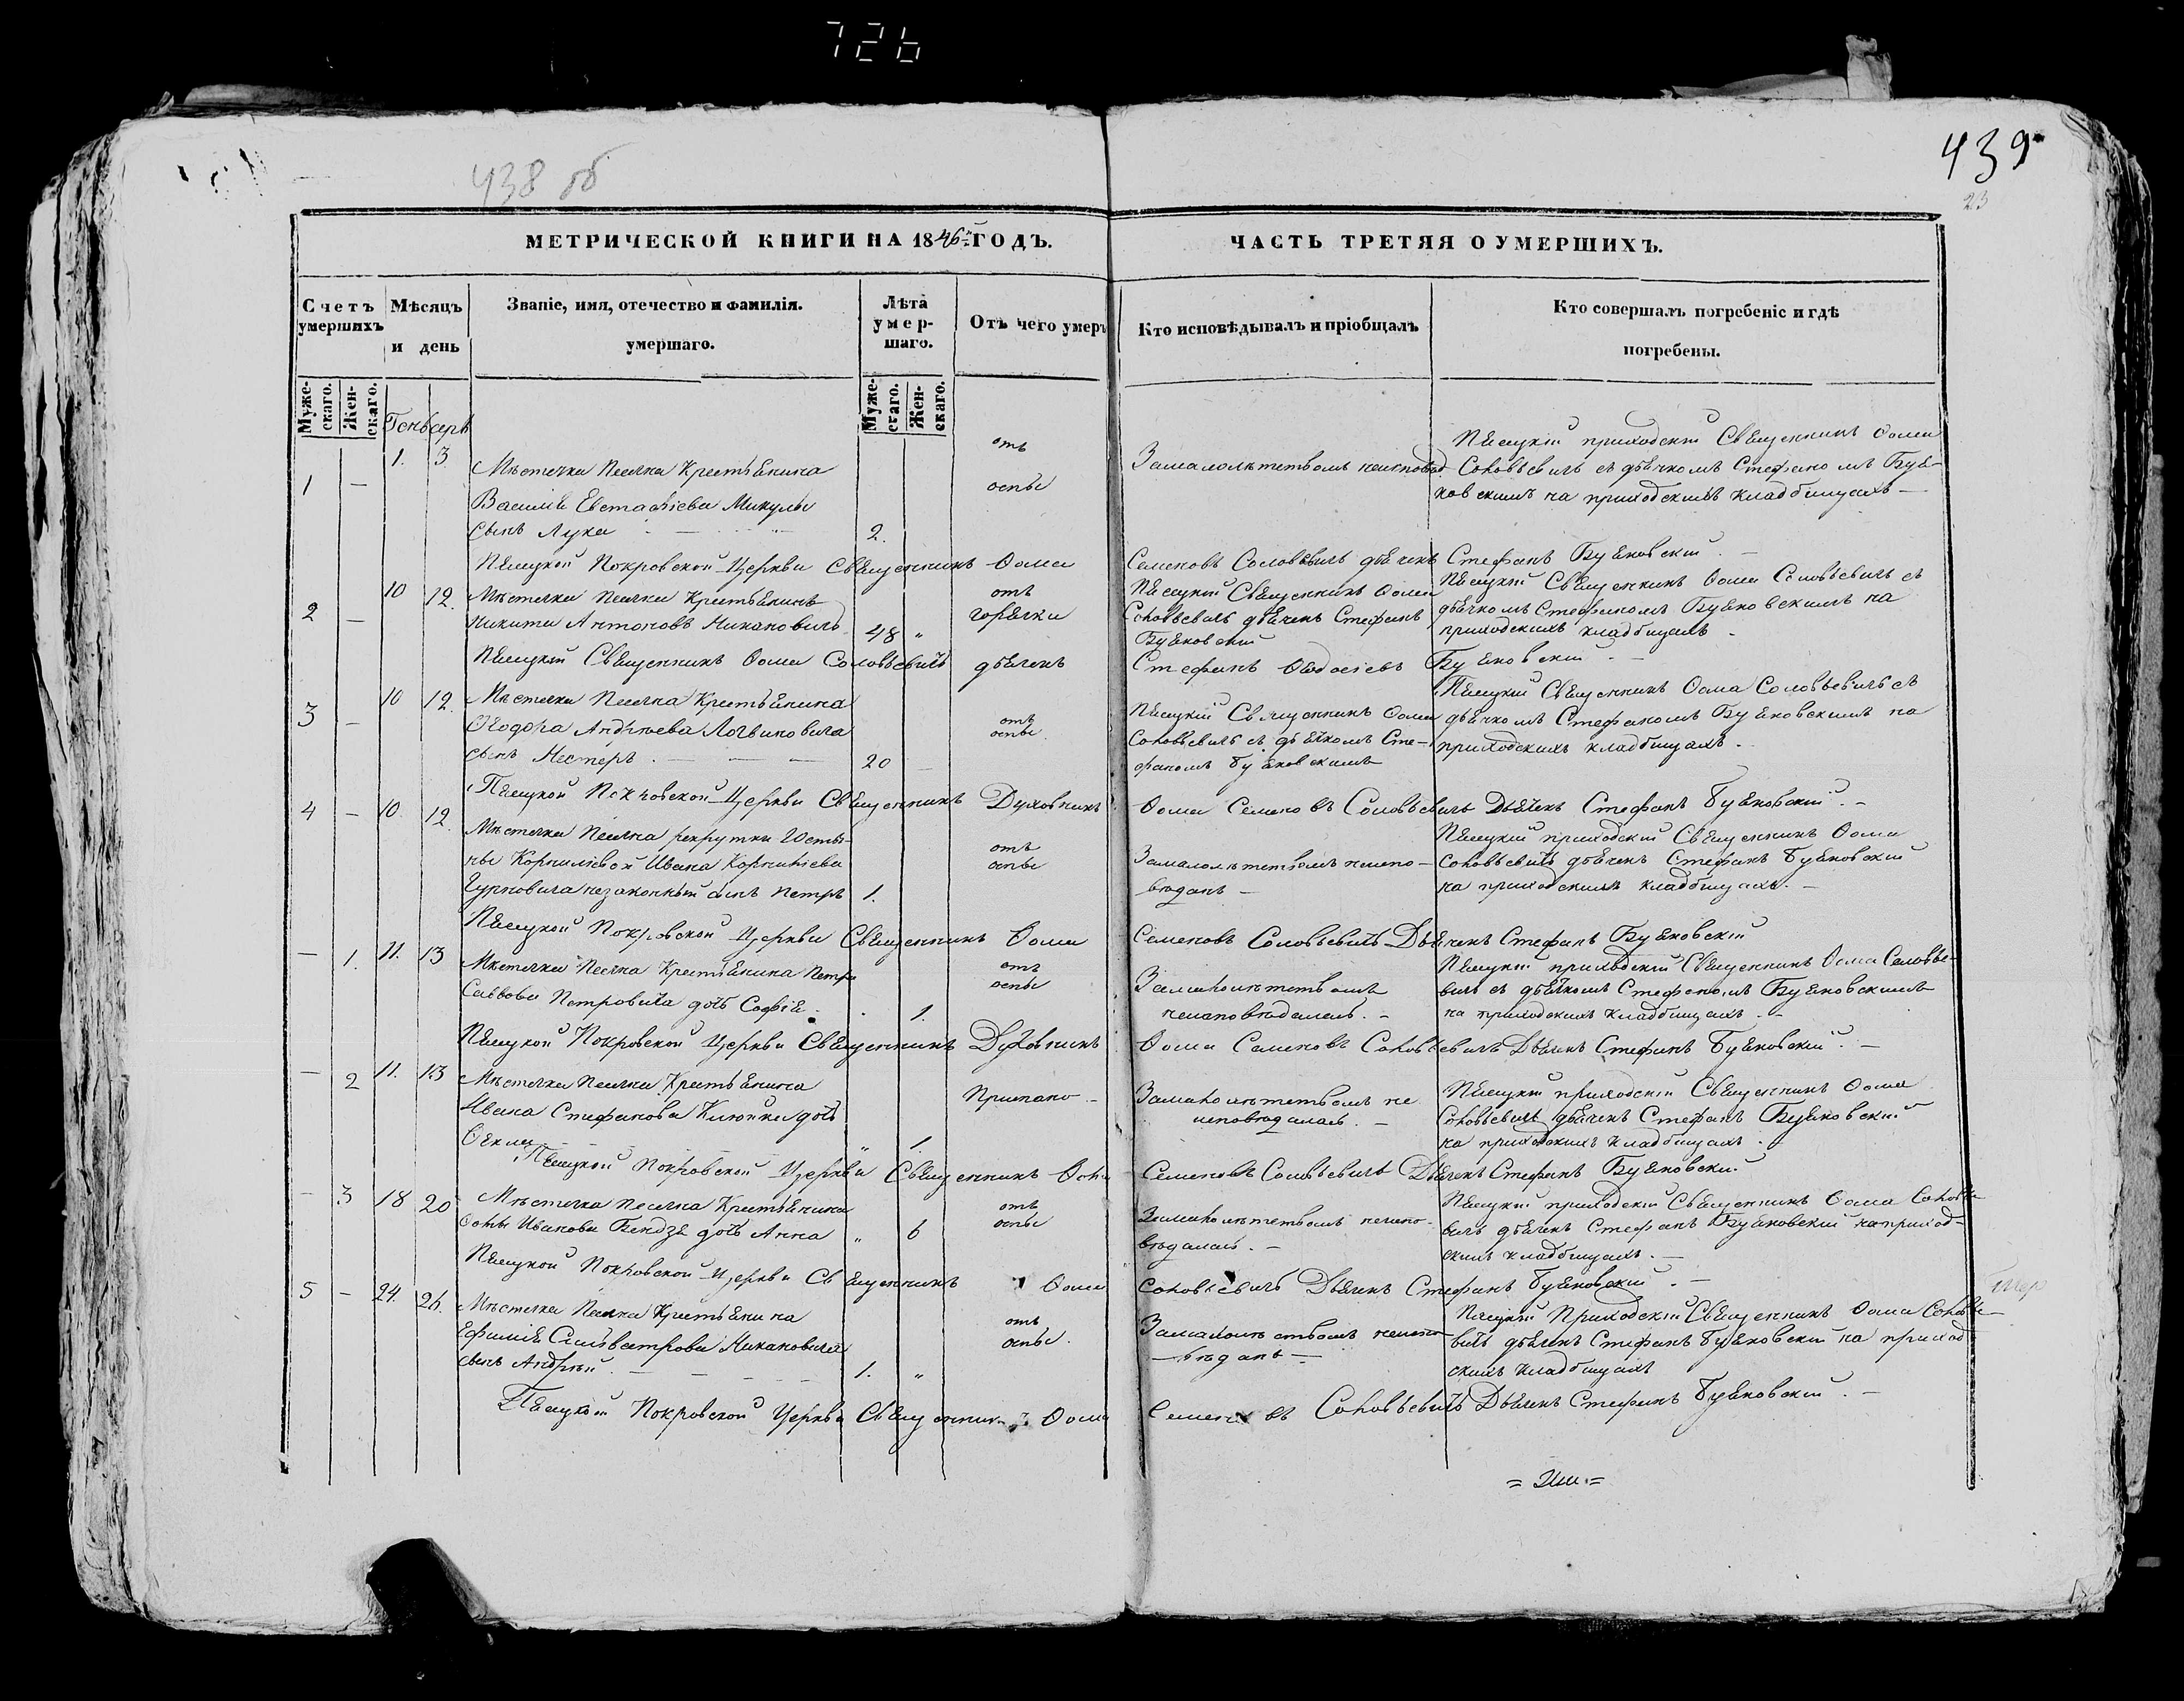 726
438 об
439
23
МЕТРИЧЕСКОЙ КНИГИ НА 1846й ГОДЪ.
ЧАСТЬ ТРЕТЯЯ О УМЕРШИХЪ.
Счетъ умершихъ
Мѣсяцъ и день
Званіе, имя, отечество и фамилія. умершаго.
Лѣта умершаго.
Отъ чего умеръ
Кто исповѣдывалъ и пріобщалъ
Кто совершалъ погребеніе и гдѣ погребены.
Мужескаго.
Женскаго.
Мужескаго.
Женскаго.
Генварь
1 — 1. 3.
Мѣстечка Песчка Крестьянина
Василія Евстафіева Микулы
сынъ Лука 2.
отъ
оспы
Замалолѣтствомъ неисповѣд
Пѣсуцкій приходскій Священникъ Ѳома
Соловьевичъ съ дьячкомъ Стефаномъ Буя-
ковскимъ на приходскихъ кладбищахъ —
Пѣсуцкой Покровской Церкви Священникъ Ѳома Семеновъ Соловьевичъ дьячекъ Стефанъ Буяковскій. —
2 — 10 12.
Мѣстечка Песчка Крестьянинъ
Никита Антоновъ Никановичъ 48 "
отъ
горячки
Пѣсуцкій Священникъ Ѳома
Соловьевичъ дьячекъ Стефанъ
Буяковскій
Пѣсуцкій Священникъ Ѳома Соловьевичъ съ
дьячкомъ Стефаномъ Буяковскимъ на
приходскихъ кладбищахъ —
Пѣсуцкій Священникъ Ѳома Соловьевичъ дьячекъ Стефанъ Ѳедосіевъ Буяковскій. —
3 — 10 12.
Мѣстечка Песчка Крестьянина
Ѳеодора Андреева Логвиновича
сынъ Нестеръ . — — — 20 —
отъ
оспы
Пѣсуцкій Священникъ Ѳома
Соловьевичъ съ дьячкомъ Сте-
фаномъ Буяковскимъ
Пѣсуцкій Священникъ Ѳома Соловьевичъ съ
дьячкомъ Стефаномъ Буяковскимъ на
приходскихъ кладбищахъ. —
Пѣсуцкой Покровской Церкви Священникъ Духовникъ Ѳома Семеновъ Соловьевичъ Дьячекъ Стефанъ Буяковскій. —
4 — 10. 12.
Мѣстечка Песчка рекрутки Усть-
ньи Корниліевой Ивана Корниліева
незаконный сынъ Петръ 1.
отъ
оспы
Замалолѣтствомъ неиспо-
вѣданъ —
Пѣсуцкій приходскій Священникъ Ѳома
Соловьевичъ дьячекъ Стефанъ Буяковскій
на приходскихъ кладбищахъ. —
Пѣсуцкой Покровской Церкви Священникъ Ѳома Семеновъ Соловьевичъ Дьячекъ Стефанъ Буяковскій
— 1. 11. 13
Мѣстечка Песчка Крестьянина Петра
Саввова Петровича дочь Софія . . 1.
отъ
оспы
Замалолѣтствомъ
неисповѣдалась. —
Пѣсуцкій приходскій Священникъ Ѳома Соловье-
вичъ съ дьячкомъ Стефаномъ Буяковскимъ
на приходскихъ кладбищахъ. —
Пѣсуцкой Покровской Церкви Священникъ Духовникъ Ѳома Семеновъ Соловьевичъ Дьячекъ Стефанъ Буяковскій. —
— 2 11. 13
Мѣстечка Песчка Крестьянина
Ивана Стефанова Клюйки дочь
Ѳекла — " 1.
Замалолѣтствомъ не
исповѣдалась. —
Пѣсуцкій приходскій Священникъ Ѳома
Соловьевичъ дьячекъ Стефанъ Буяковскій
на приходскихъ кладбищахъ.
Пѣсуцкой Покровской Церкви Священникъ Ѳома Семеновъ Соловьевичъ Дьячекъ Стефанъ Буяковскій
— 3 18 20
Мѣстечка Песчка Крестьянина
Ѳомы Иванова Бендзи дочь Анна " 6
отъ
оспы
Замалолѣтствомъ неиспо-
вѣдалась. —
Пѣсуцкій приходскій Священникъ Ѳома Соловье-
вичъ дьячекъ Стефанъ Буяковскій на приход-
скихъ кладбищахъ. —
Пѣсуцкой Покровской Церкви Священникъ Ѳома Соловьевичъ Дьячекъ Стефанъ Буяковскій. —
5 — 24. 26.
Мѣстечка Песчка Крестьянина
Ефимія Сильвестрова Никановича
сынъ Андрей . — — — 1. "
отъ
оспы.
Замалолѣтствомъ неиспо
— вѣданъ —
Пѣсуцкій Приходскій Священникъ Ѳома Соловье-
вичъ дьячекъ Стефанъ Буяковскій на приход
скихъ кладбищахъ
Пѣсуцкой Покровской Церкви Священникъ Ѳома Семеновъ Соловьевичъ Дьячекъ Стефанъ Буяковскій. —